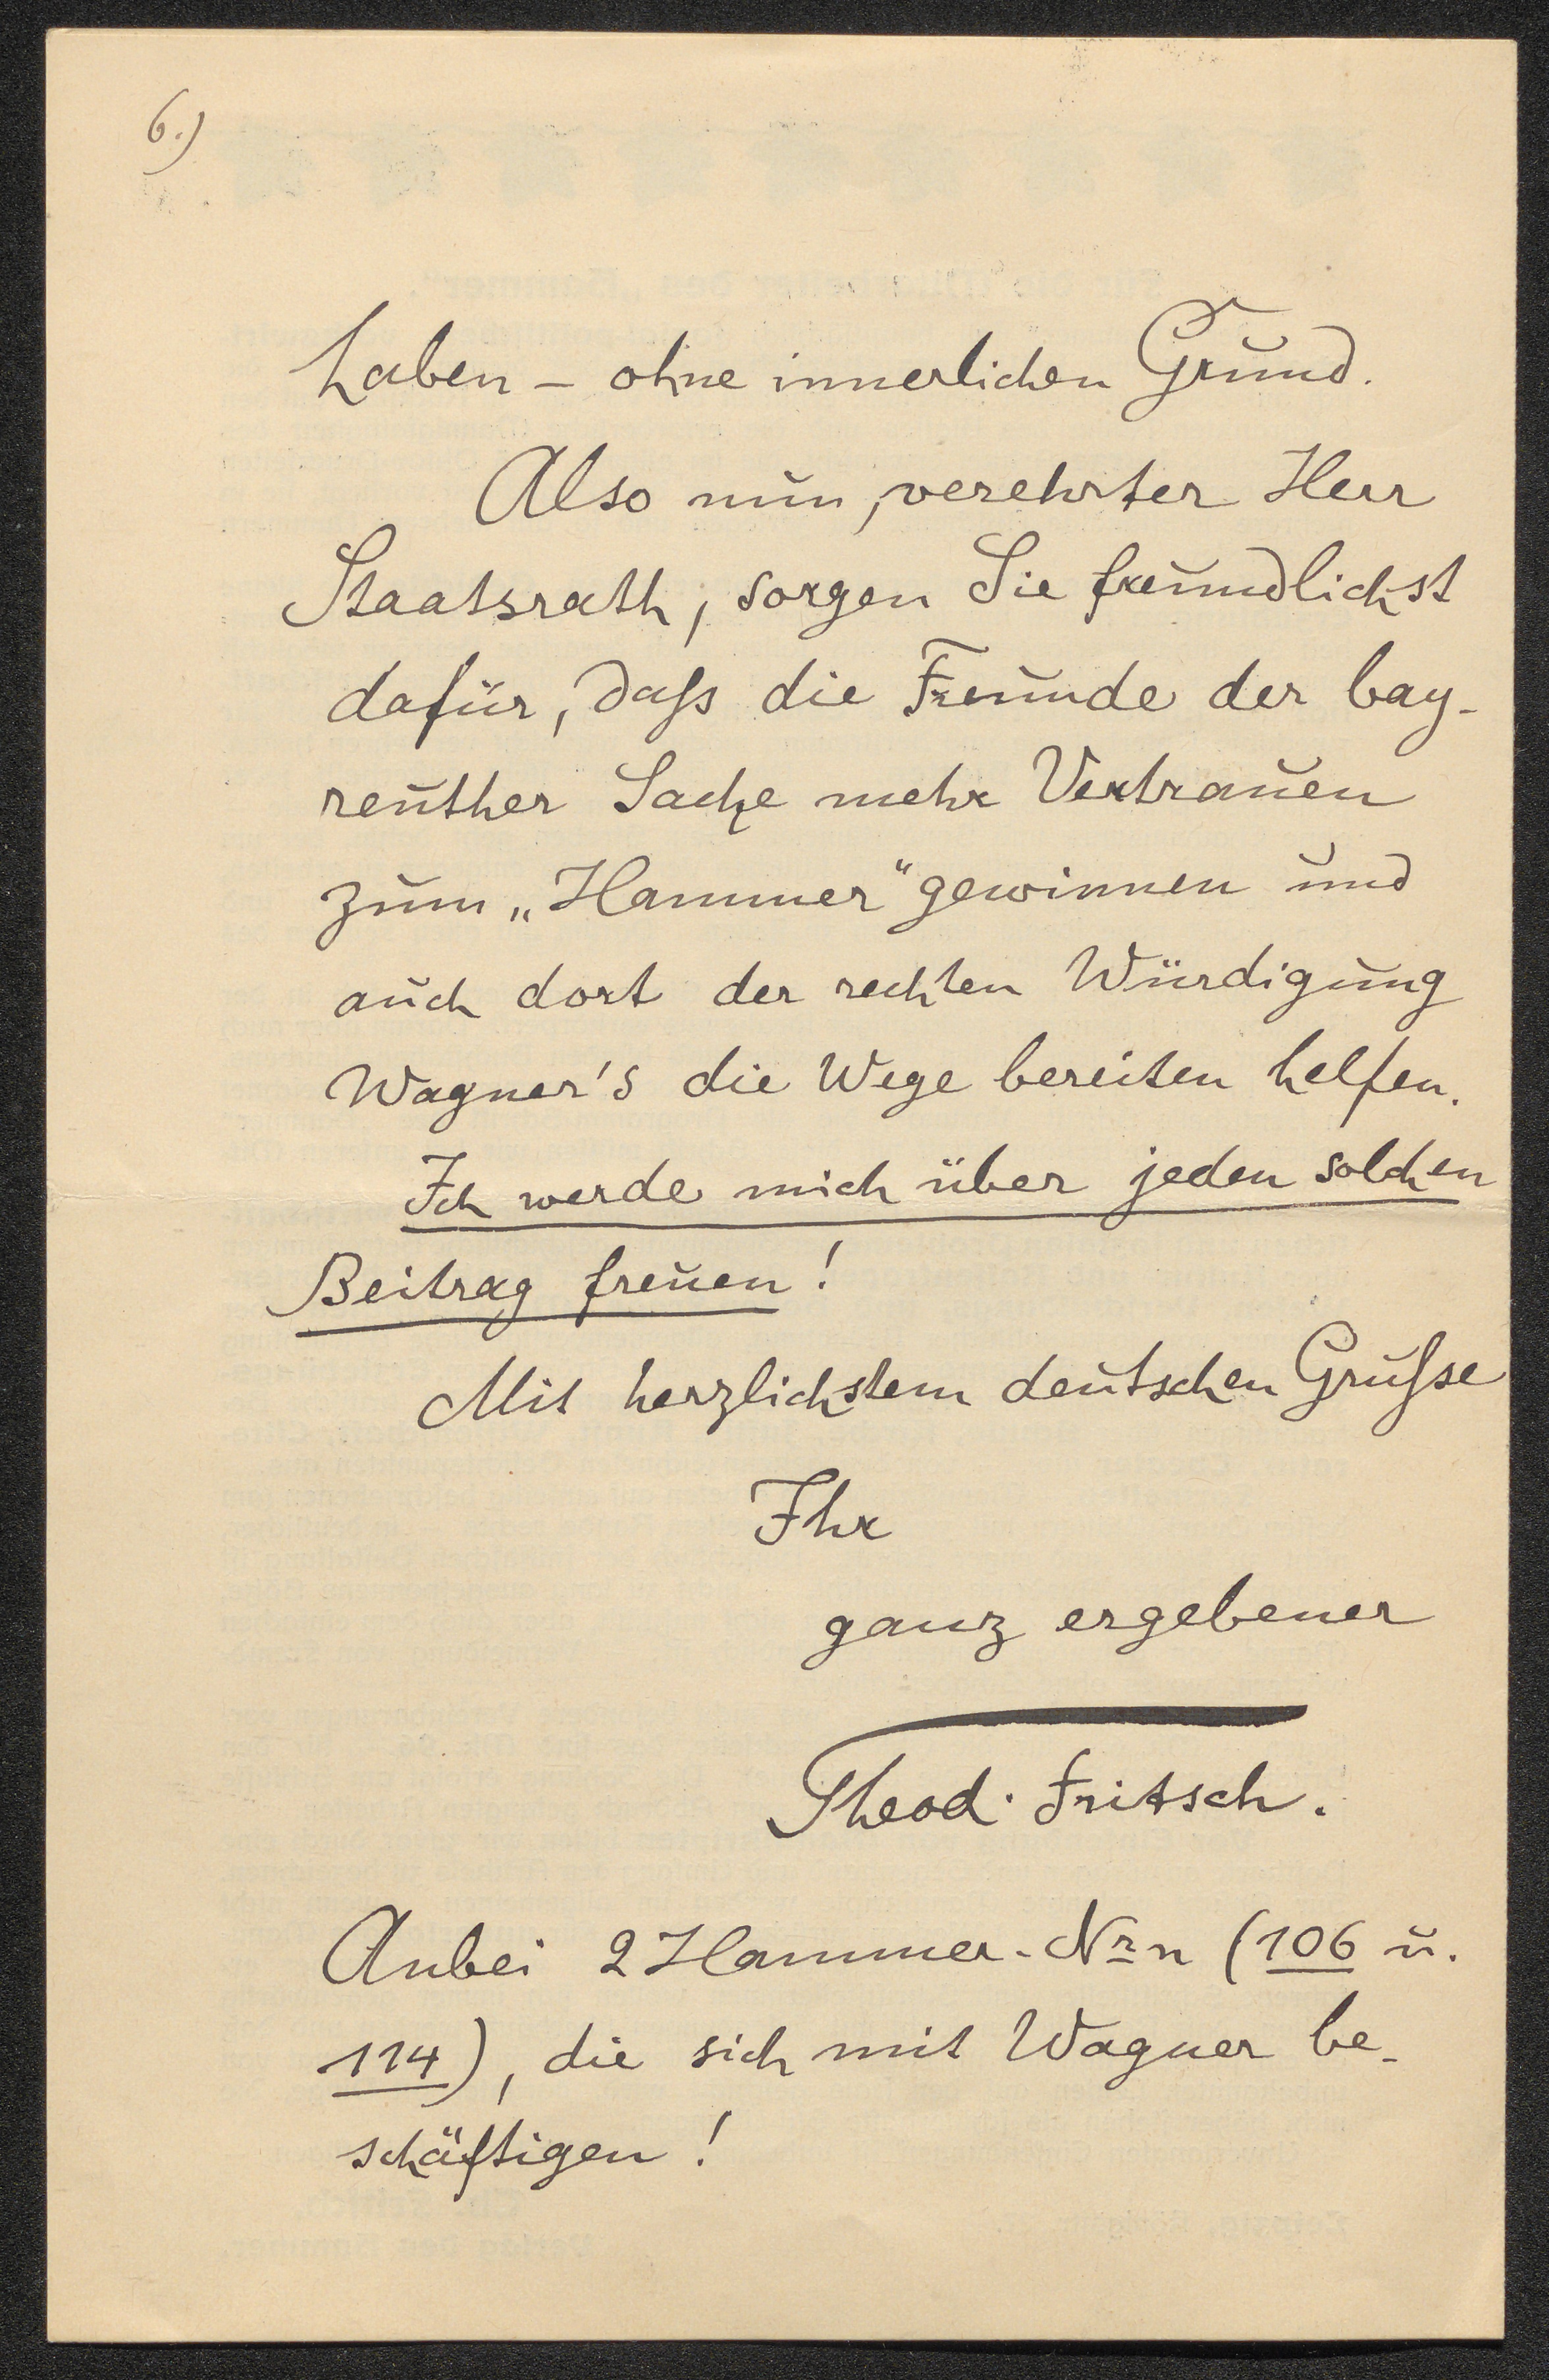 6.)
haben – ohne innerlichen Grund.
Also nun, verehrter Herr
Staatsrath, sorgen Sie freundlichst
dafür, daß die Freunde der bay-
reuther Sache mehr Vertrauen
zum „Hammer“ gewinnen und
auch dort der rechten Würdigung
Wagner's die Wege bereiten helfen.
Ich werde mich über jeden solchen
Beitrag freuen!
Mit herzlichstem deutschen Gruße
Ihr
ganz ergebener
Theod. Fritsch.
Anbei 2 Hammer-Nrn (106 u.
114), die sich mit Wagner be-
schäftigen!